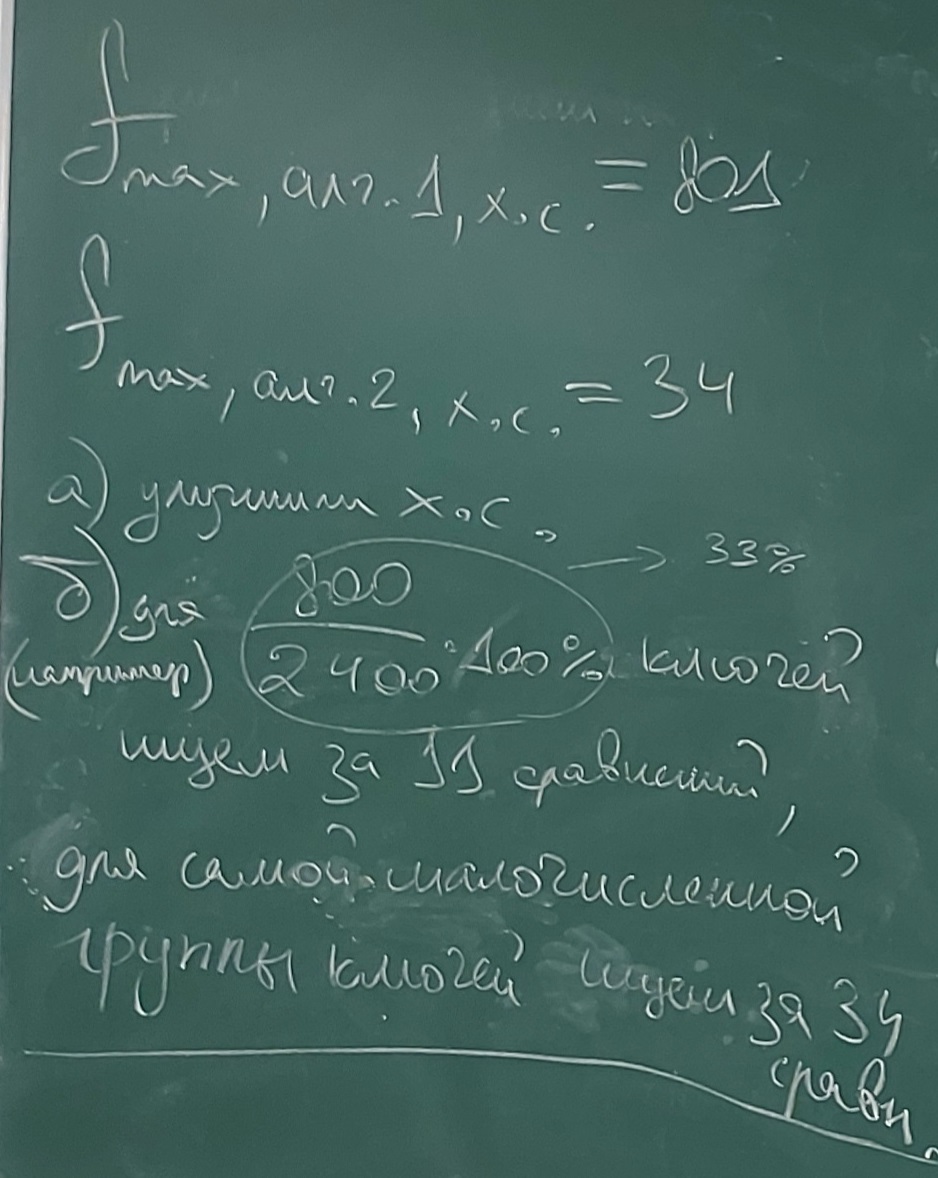 f max, алг. 1, х.с. = 801
f max, алг. 2, х.с. = 34
а) улучшили х.с.
→ 33%
б) для 800/2400 · 100% ключей
(например)
ищем за 11 сравнений,
для самой малочисленной
группы ключей ищем за 34
сравн.